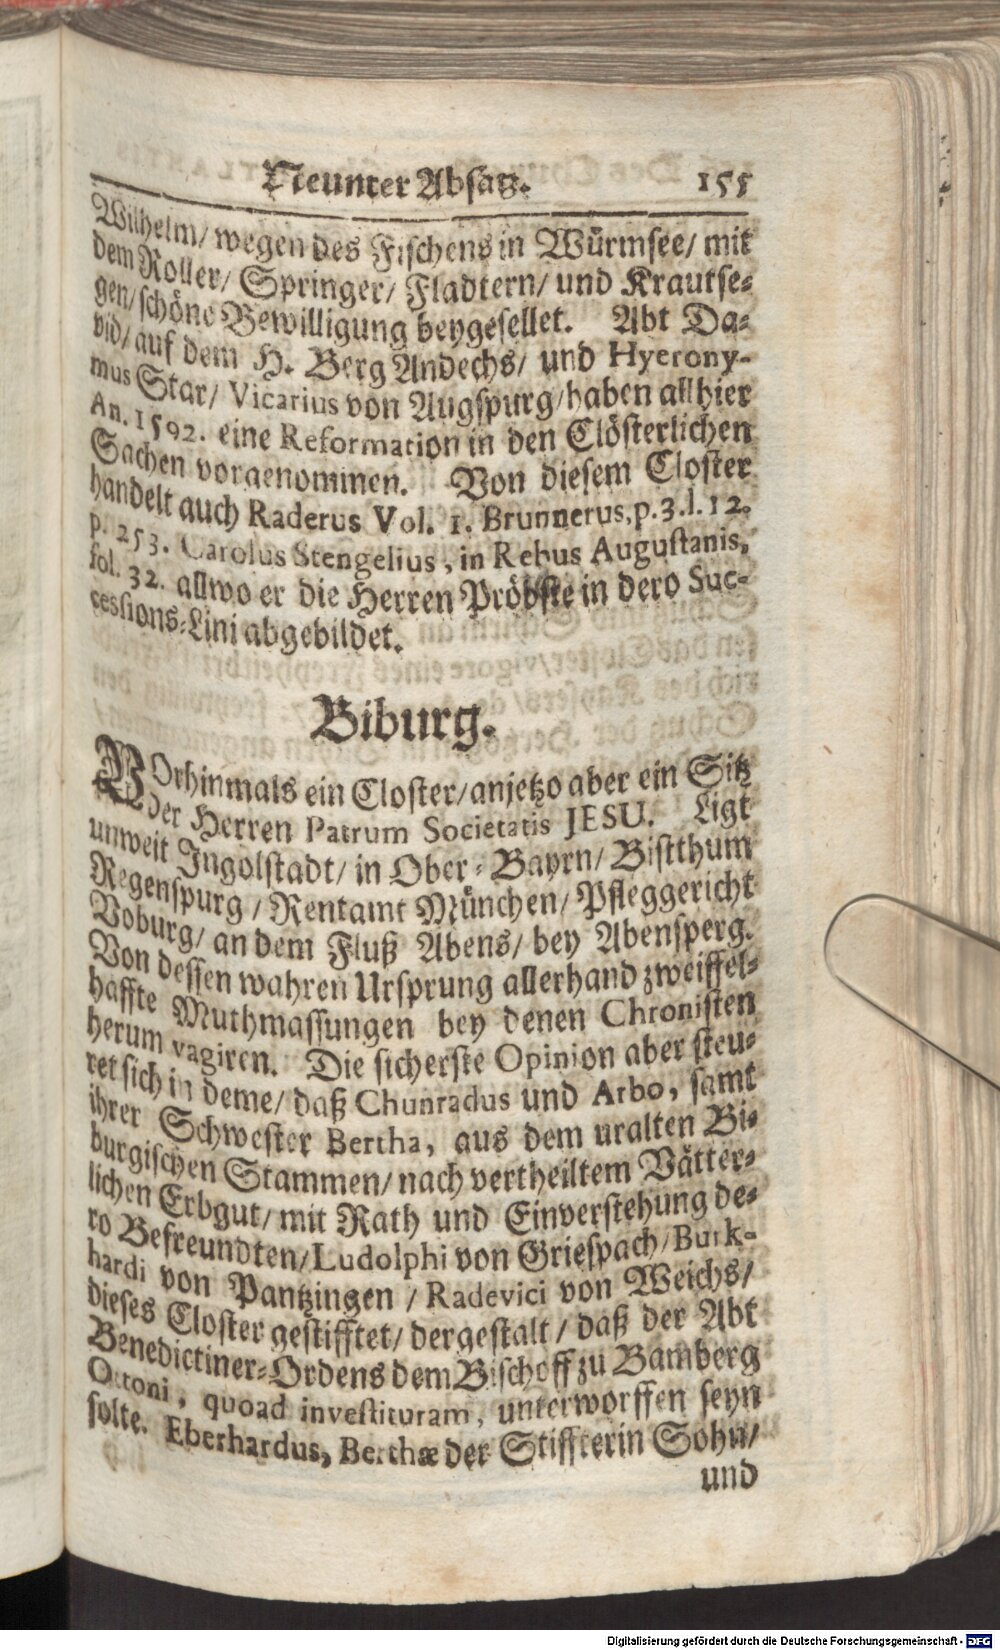 Neunter Absatz. 155
Wilhelm/ wegen des Fischens in Würmsee/ mit
dem Roller/ Springer/ Fladtern/ und Krautse-
gen/ schöne Bewilligung beygesellet. Abt Da-
vid/ auf dem H. Berg Andechs/ und Hyerony-
mus Star/ Vicarius von Augspurg/ haben allhier
An. 1592. eine Reformation in den Clösterlichen
Sachen vorgenommen. Von diesem Closter
handelt auch Raderus Vol. 1. Brunnerus, p. 3. l. 12.
p. 253. Carolus Stengelius, in Rebus Augustanis,
fol. 32. allwo er die Herren Pröbste in dero Suc-
cessions-Lini abgebildet.
Biburg.
VOrhinmals ein Closter/ anjetzo aber ein Sitz
der Herren Patrum Societatis JESU. Ligt
unweit Ingolstadt/ in Ober-Bayrn/ Bistthum
Regenspurg/ Rentamt München/ Pfleggericht
Voburg/ an dem Fluß Abens/ bey Abensperg.
Von dessen wahren Ursprung allerhand zweiffel-
haffte Muthmassungen bey denen Chronisten
herum vagiren. Die sicherste Opinion aber steu-
ret sich in deme/ daß Chunradus und Arbo, samt
ihrer Schwester Bertha, aus dem uralten Bi-
burgischen Stammen/ nach vertheiltem Vätter-
lichen Erbgut/ mit Rath und Einverstehung de-
ro Befreundten/ Ludolphi von Griespach/ Burk-
hardi von Pantzingen/ Radevici von Weichs/
dieses Closter gestifftet/ dergestalt/ daß der Abt
Benedictiner-Ordens dem Bischoff zu Bamberg
Ottoni, quoad investituram, unterworffen seyn
solte. Eberhardus, Berthæ der Stiffterin Sohn/
und
Digitalisierung gefördert durch die Deutsche Forschungsgemeinschaft - DFG